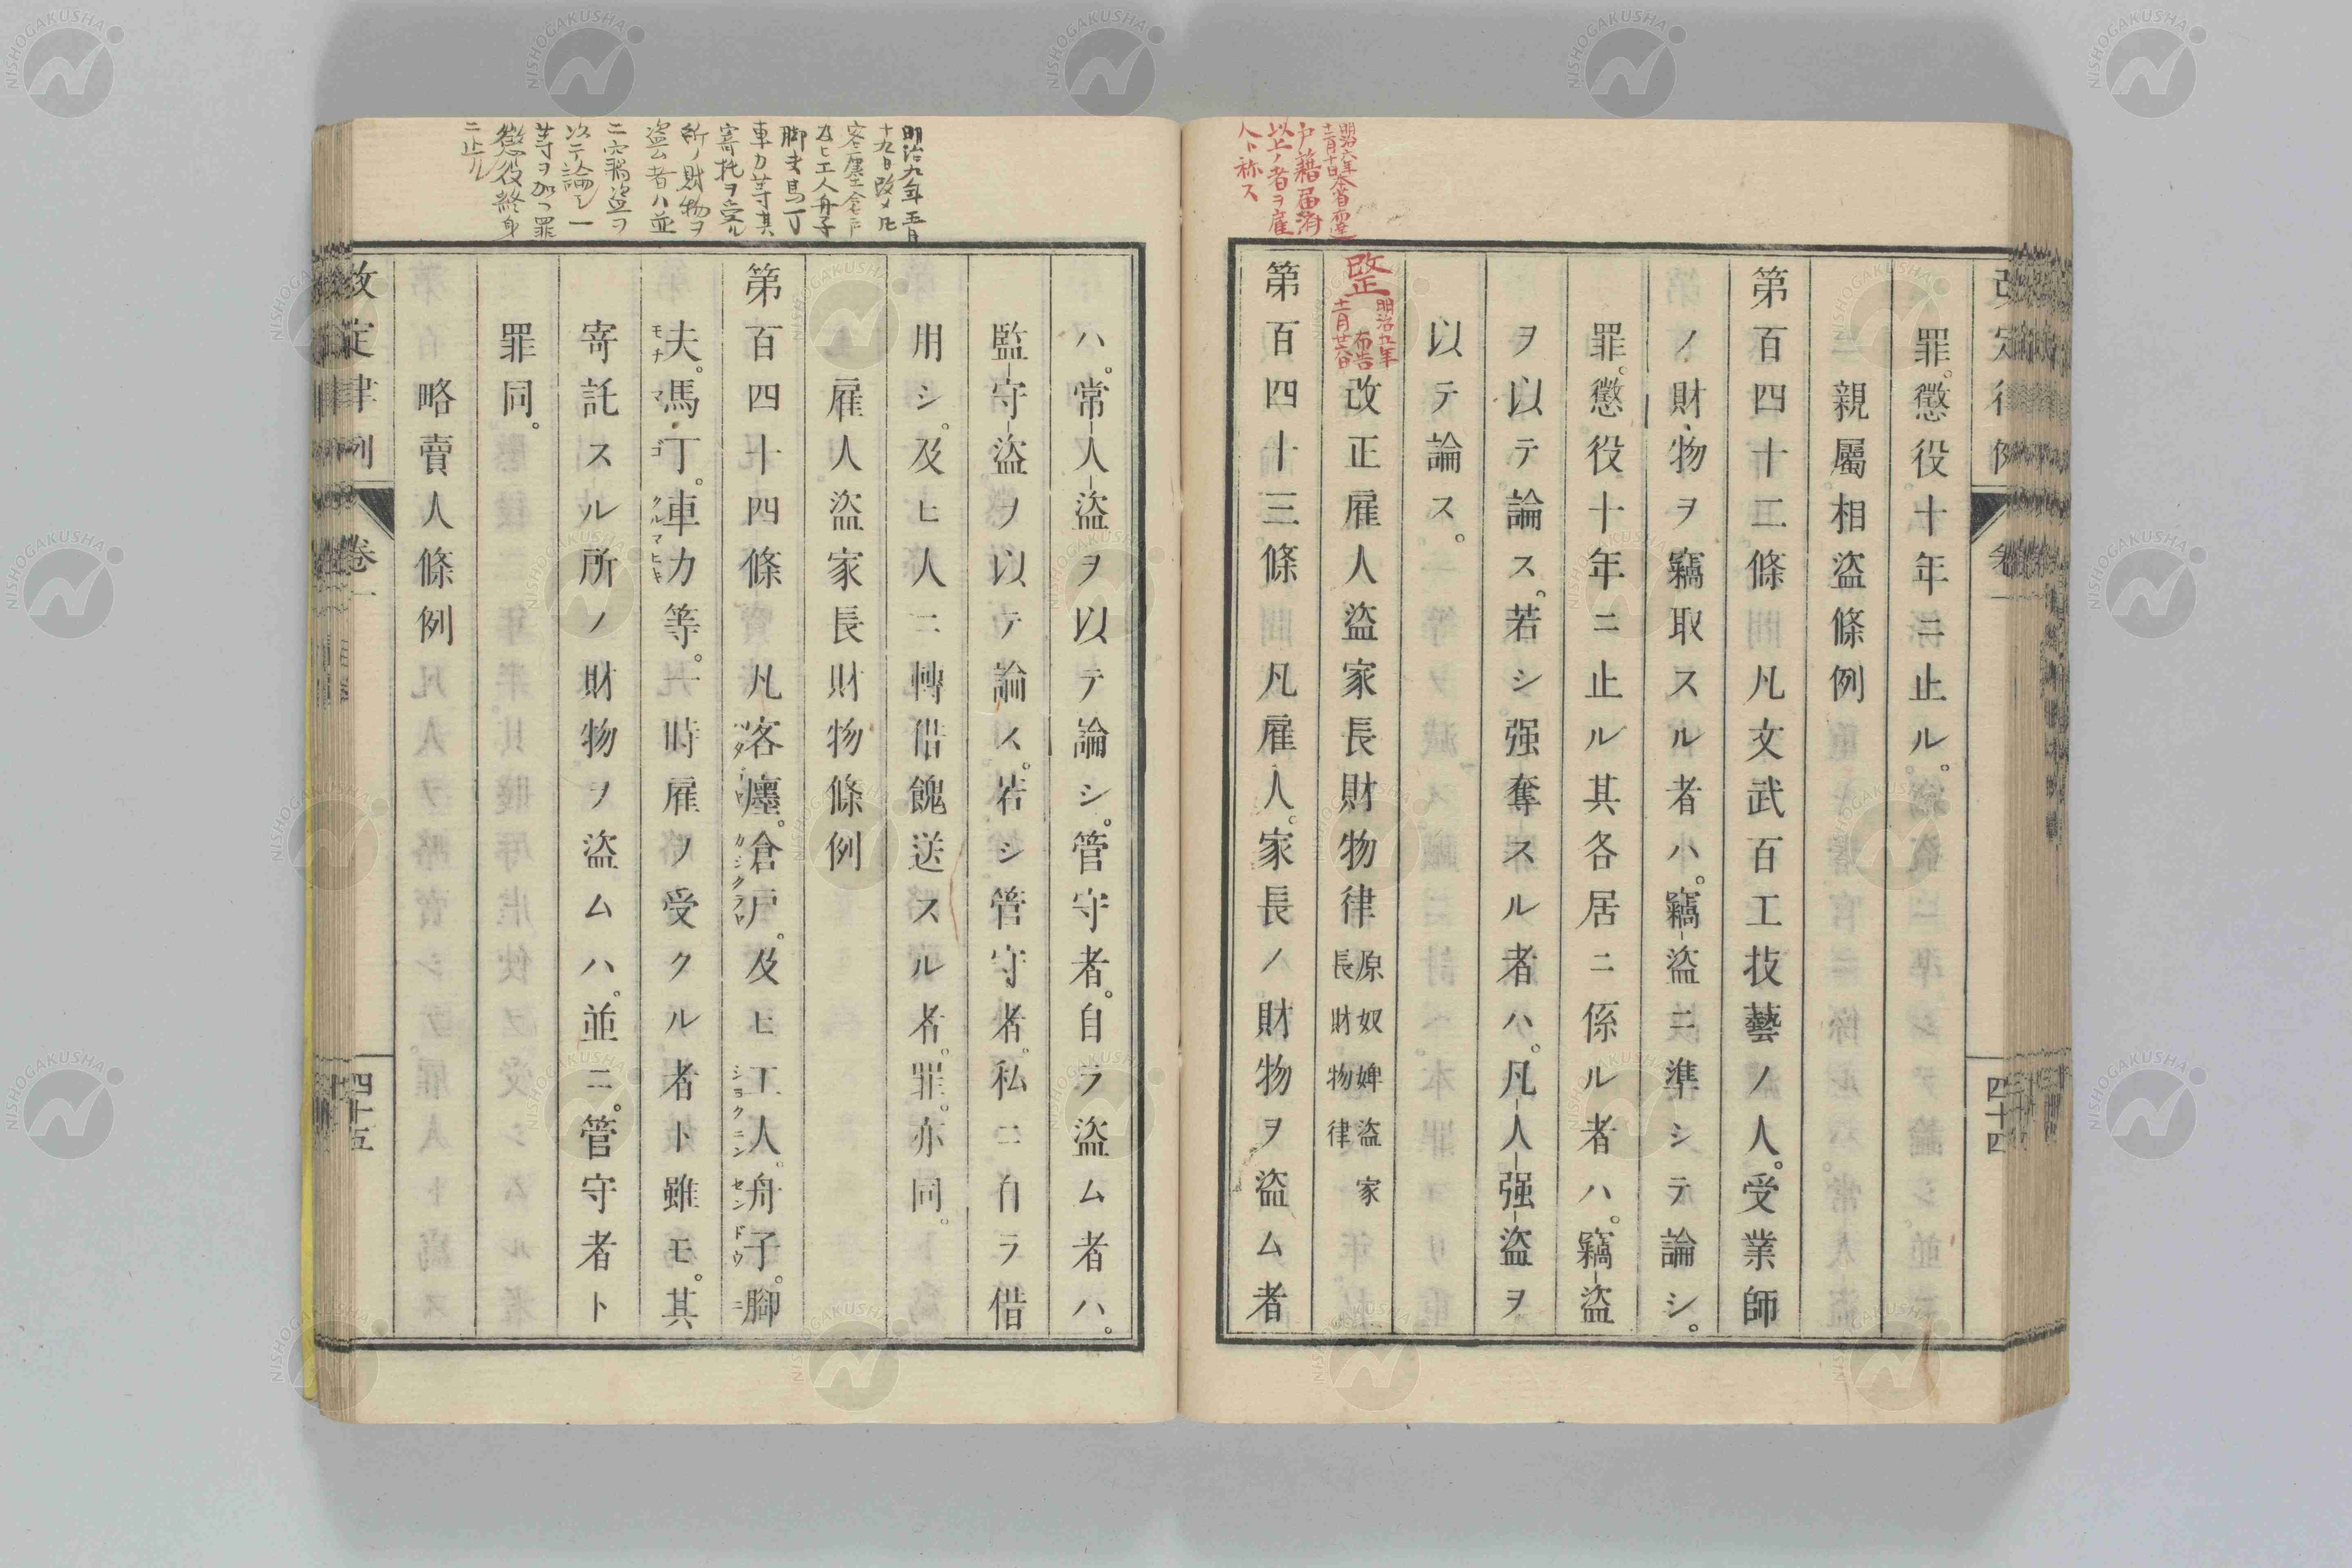 罪。懲役十年ニ止ル。
親屬相盜條例
第百四十二條 凡文武百工技藝ノ人。受業師
ノ財物ヲ竊取スル者ハ。竊盜ニ準シテ論シ。
罪。懲役十年ニ止ル其各居ニ係ル者ハ。竊盜
ヲ以テ論ス。若シ强奪スル者ハ。凡人强盜ヲ
以テ論ス。
改正雇人盜家長財物律 原奴婢盜家長財物律
第百四十三條 凡雇人。家長ノ財物ヲ盜ム者
四十四
明治六年
戸籍届済
以上ノ者ヲ雇
人ト称ス
明治九年
布告
ハ。常人盜ヲ以テ論シ。管守者。自ラ盜ム者ハ。
監守盜ヲ以テ論ス。若シ管守者。私ニ自ラ借
用シ。及ヒ人ニ轉借餽送スル者。罪。亦同。
雇人盜家長財物條例
第百四十四條 凡客廛。倉戸。及ヒ工人。舟子。脚
夫。馬丁。車力等。一時雇ノ受クル者ト雖モ。其
寄託スル所ノ財物ヲ盜ムハ。並ニ。管守者ト
罪同。
略賣人條例
改定律例 卷一 四十五
明治九年五月
十九日改メ凡
客廛倉戸
及ヒ工人舟子
脚夫馬丁
車力等其
寄托ヲ受ル
所ノ財物ヲ
盗ム者ハ並
ニ竊盗ヲ
以テ論シ一
等ヲ加フ罪
懲役終身
ニ止ル